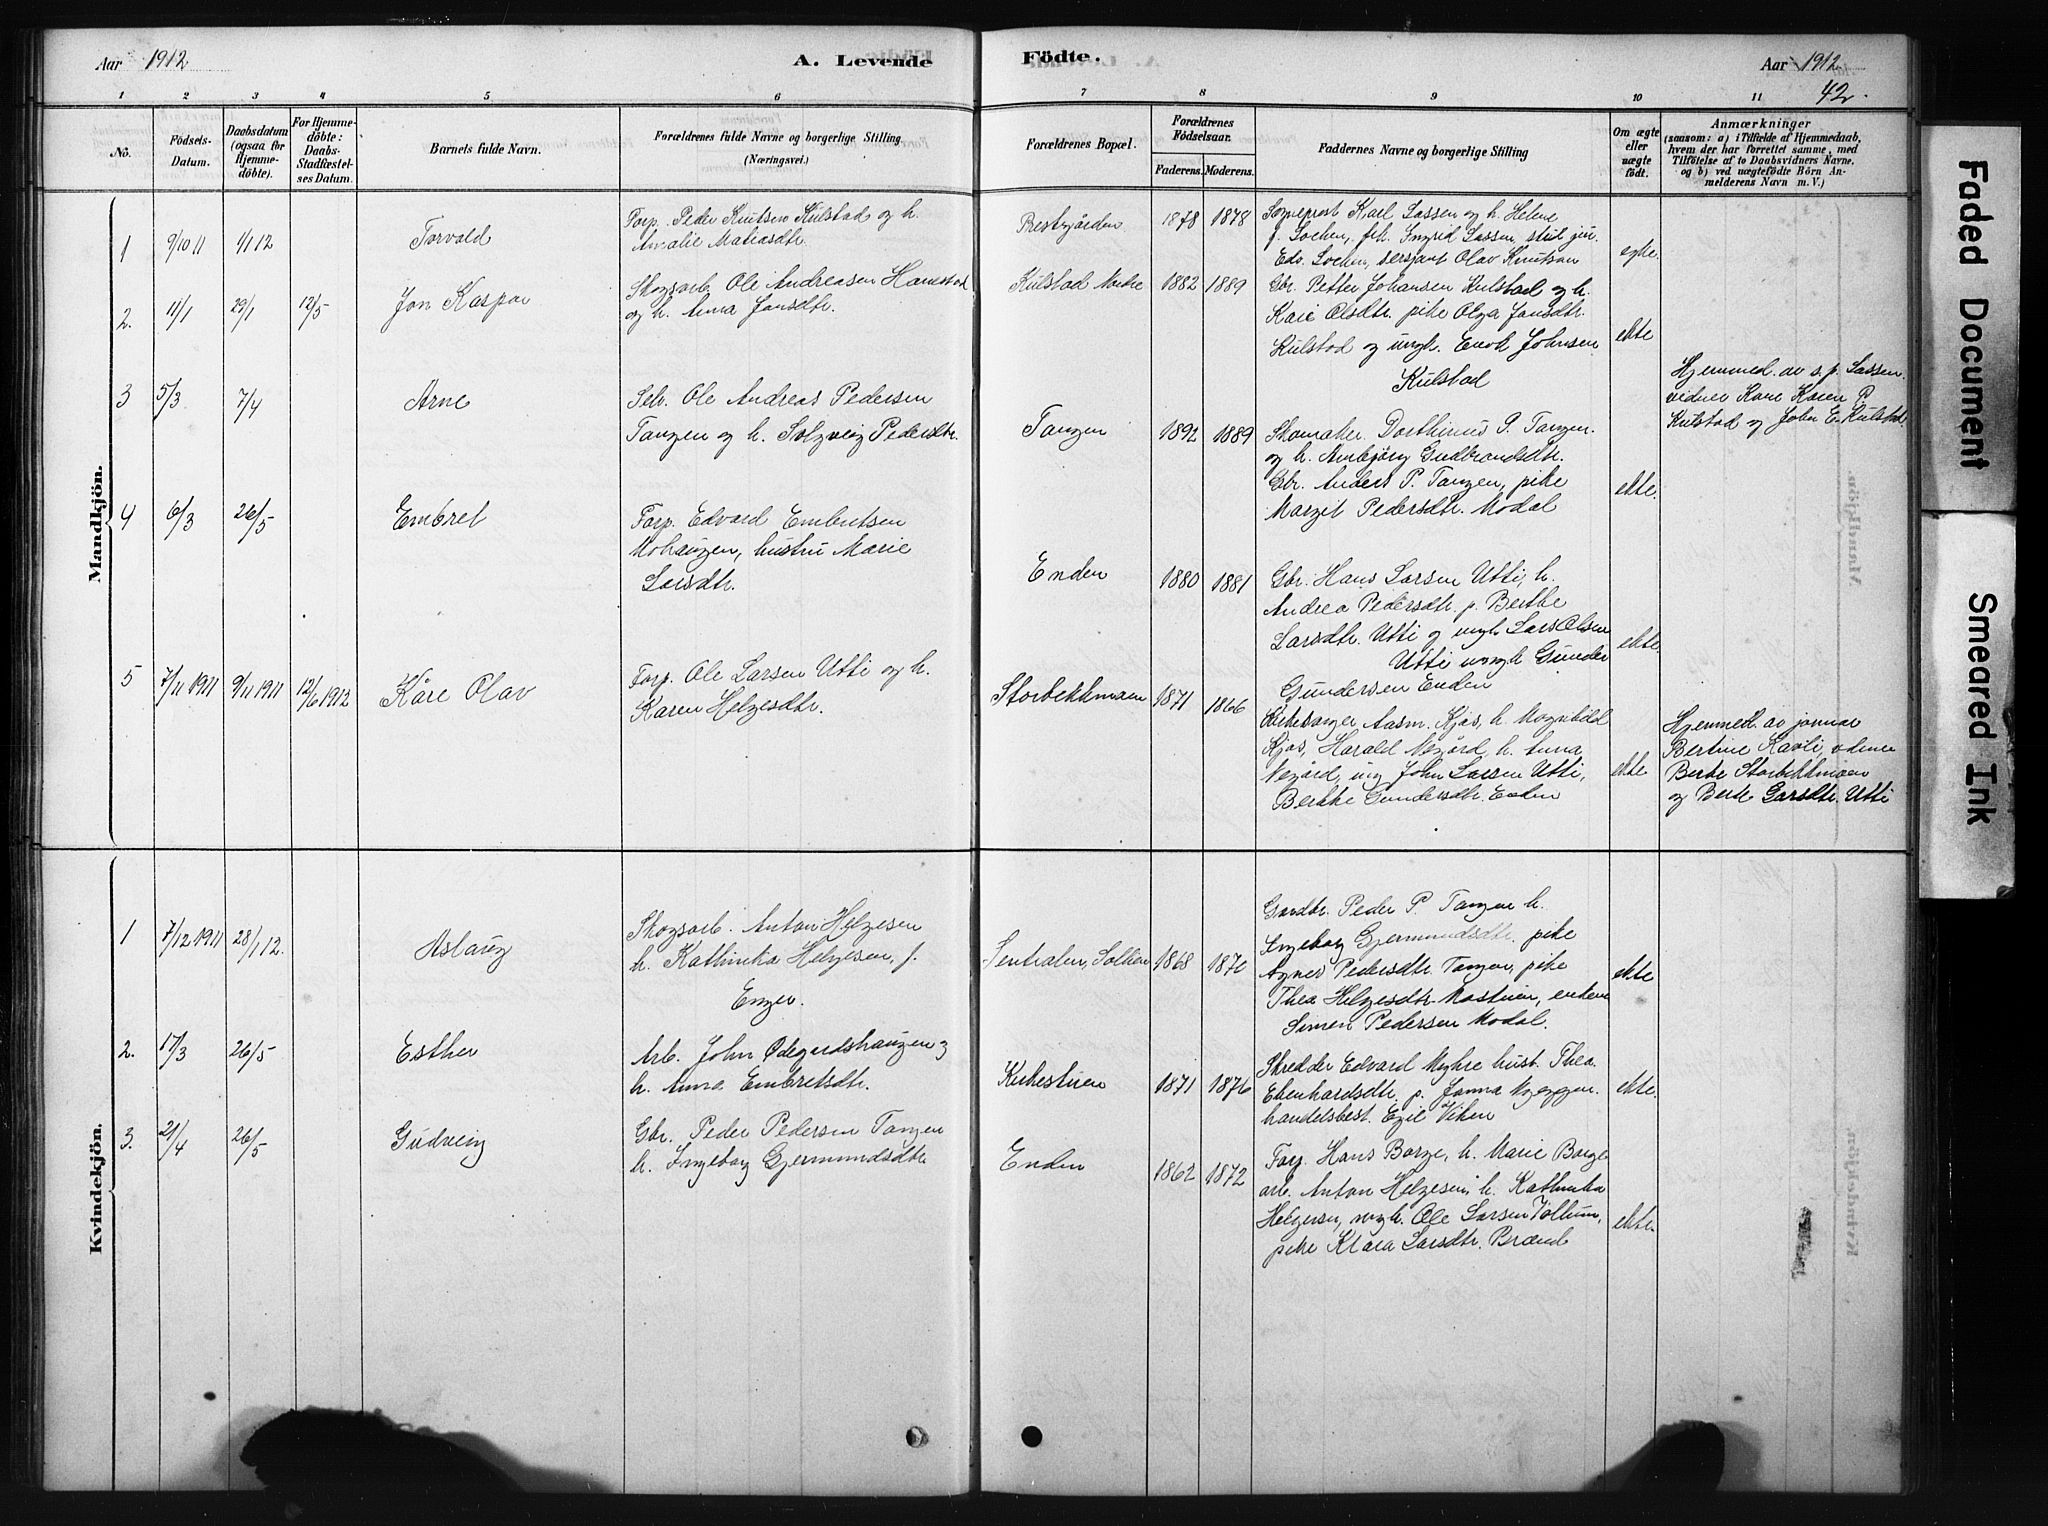 Aar 1912
A. Levende
Födte.
Aar 1912
42.
1 2 3 4 5 6 7 8 9 10 11
No.
Födsels-
Datum.
Daabsdatum
(ogsaa før
Hjemme-
döbte).
For Hjemme-
döbte:
Daabs-
Stadfæstel-
ses Datum.
Barnets fulde Navn.
Forældrenes fulde Navne og borgerlige Stilling
(Næringsvei.)
Forældrenes Bopæl.
Forældrenes
Födselsaar.
Faderens. Moderens.
Faddernes Navne og borgerlige Stilling
Om ægte
eller
uægte
født.
Anmærkninger
(saasom: a) i Tilfælde af Hjemmedaab,
hvem der har forrettet samme, med
Tilföielse af to Daabsvidners Navne,
og b) ved uægtefödte Börn An-
melderens Navn m. V.)
Mandkjön.
1 9/10 11 1/1 12 Torvald
Forp. Peder Knutsen Kulstad og h.
Amalie Matiasdtr.
Prestgården 1878 1878
Sogneprest Karl Lassen og h. Helene
f. Lochen, frk. Ingrid Lassen, stud. jur.
Edv. Lochen, sersjant Olav Knutsen
egte.
2. 11/1 29/1 12/5 Jon Kaspar
Skogsarb. Ole Andreasen Hanestad
og h. Anna Jonsdtr.
Kulstad 1882 1889
Gbr. Petter Johansen Kulstad og h.
Kari Olsdtr. pike Olga Jonsdtr.
Kulstad og ungk. Enok Johnsen
Kulstad
ekte
Hjemmed. av s.p. Lassen
vidner Kare Karen P.
Kulstad og John E. Kulstad
3 5/3 7/4 Arne
Selv. Ole Andreas Pedersen
Tangen og h. Solgveig Pedersdtr.
Tangen 1892 1889
Skomaker P. Tangen.
og h. Anbjörg Gudbrandsdtr.
Gbr. Anders P. Tangen, pike
Margit Pedersdtr. Modal
ekte.
4 6/3 26/5 Embret
Forp. Edvard Embretsen
Mohaugen, hustru Marie
Larsdtr.
Enden 1880 1881
Gbr. Hans Larsen Utti, h.
Andrea Pedersdtr. p. Berthe
Larsdtr. Utti og ungk. Lars Olsen
Utti ungk Gunder
Gundersen Enden
ekte.
5 7/11 1911 9/11 1911 12/6 1912 Kåre Olav
Forp. Ole Larsen Utti og h.
Karen Helgesdtr.
Storbekkmoen 1871 1866
Kirkesanger Aasm. Kjos, h. Magnhild
Kjos, Harald Negård h. Anna
Negård, ung John Larsen Utti,
Berthe Gundersdtr. Enden
ekte
Hjemmed. av jomar
Bertine Kavli, vidner
Berte Storbekkmoen
og Berte Larsdtr. Utti
Kvindekjön.
1 7/12 1911 28/1 12. Aslaug
Skogsarb. Anton Helgesen
h. Kathinka Helgesen, f.
Enger.
Sentralen, Sollien 1868 1870
Gardbr. Peder P. Tangen h.
Ingeborg Gjermundsdtr. pike
Agnes Pedersdtr. Tangen, pike
Thea Helgesdtr. Mostuen, enkem
Simen Pedersen Modal.
ekte
2. 17/3 26/5 Esther
Arb. John Ødegårdshaugen og
h. Anna Embretsdtr.
Kirkestuen 1871 1876
Skredder Edvard Myhre hust. Thea
Ebenhardsdtr. p. Janna
handelsbest. Egil Viken
ekte.
3. 21/4 26/5 Gudveig
Gbr. Peder Pedersen Tangen
h. Ingeborg Gjermundsdtr
Enden 1862 1872
Forp. Hans Borge, h. Marie Borge
arb. Anton Helgesen, h. Kathinka
Helgesen, ungk. Ole Larsen Vollum,
pike Klara Larsdtr. Brænd
ekte.
Faded Document
Smeared Ink